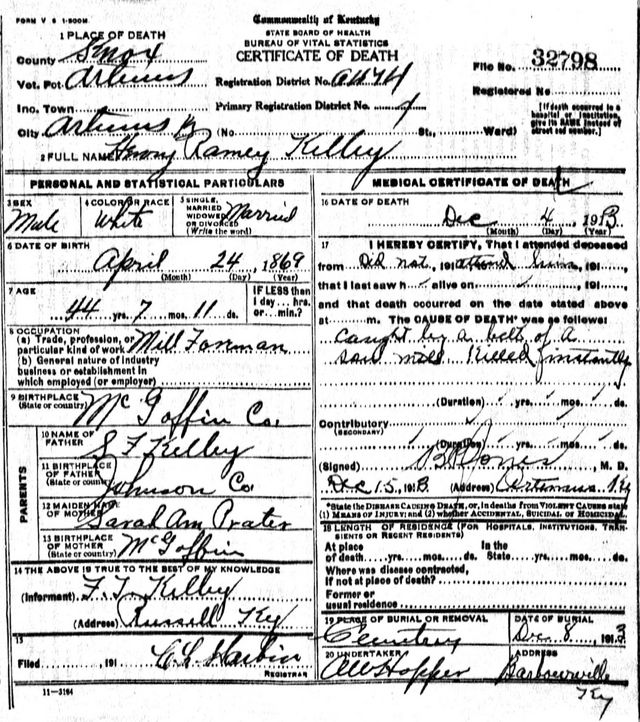 FORM V S 1-500M.
Commonwealth of Kentucky
STATE BOARD OF HEALTH
BUREAU OF VITAL STATISTICS
CERTIFICATE OF DEATH
1 PLACE OF DEATH
County Knox
Vot. Pct. Artemus
Inc. Town
City Artemus Ky (No St., Ward)
Registration District No.
Primary Registration District No.
File No. 32798
Registered No.
[If death occurred in a
hospital or institution,
give its NAME instead of
street and number.]
2 FULL NAME Henry Ramey Kelley
PERSONAL AND STATISTICAL PARTICULARS
3 SEX Male
4 COLOR OR RACE White
5 SINGLE, MARRIED WIDOWED OR DIVORCED (Write the word) Married
6 DATE OF BIRTH
April 24, 1869
(Month) (Day) (Year)
7 AGE
44 yrs. 7 mos. 11 ds.
IF LESS than
1 day... hrs.
or min.?
8 OCCUPATION
(a) Trade, profession, or
particular kind of work Mill Forman
(b) General nature of industry
business or establishment in
which employed (or employer)
9 BIRTHPLACE
(State or country) McGoffin Co.
PARENTS
10 NAME OF
FATHER S F Kelley
11 BIRTHPLACE
OF FATHER
(State or country) Johnson Co
12 MAIDEN NAME
OF MOTHER Sarah Ann Prater
13 BIRTHPLACE
OF MOTHER
(State or country) McGoffin
14 THE ABOVE IS TRUE TO THE BEST OF MY KNOWLEDGE
(Informant) Kelley
(Address) Russell Ky
15
Filed , 191 C L Harbin
REGISTRAR
11-3184
MEDICAL CERTIFICATE OF DEATH
16 DATE OF DEATH
Dec 4, 1913
(Month) (Day) (Year)
17 I HEREBY CERTIFY, That I attended deceased
from Did not, 191 attend him, 191
that I last saw h alive on , 191
and that death occurred on the date stated above
at m. The CAUSE OF DEATH* was as follows:
Caught by a belt of a
saw mill Killed Instantly
(Duration) yrs. mos. ds.
Contributory
(SECONDARY)
(Duration) yrs. mos. ds.
(Signed) Jones, M. D.
Dec 15, 1913 (Address) Artemus Ky
*State the DISEASE CAUSING DEATH, or, in deaths from VIOLENT CAUSES state
(1) MEANS OF INJURY; and (2) whether ACCIDENTAL, SUICIDAL or HOMICIDAL
18 LENGTH OF RESIDENCE (FOR HOSPITALS, INSTITUTIONS, TRAN-
SIENTS OR RECENT RESIDENTS)
At place In the
of death yrs. mos. ds. State yrs. mos. ds.
Where was disease contracted,
if not at place of death?
Former or
usual residence
19 PLACE OF BURIAL OR REMOVAL
Cemetery
DATE OF BURIAL
Dec 8, 1913
20 UNDERTAKER
Hopper
ADDRESS
Barbourville
Ky